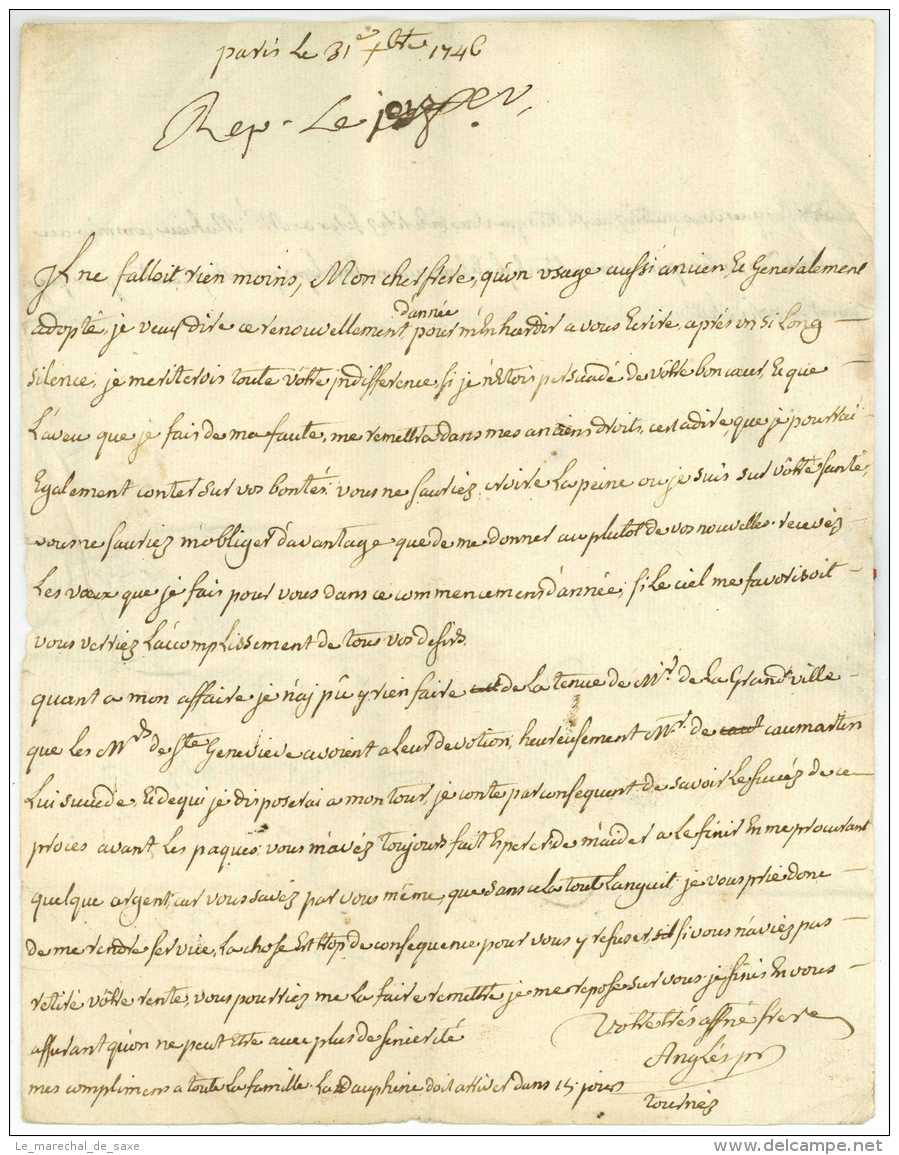 paris le 31e xbre 1746
Rep. Le janv.
Il ne falloit rien moins, Mon cher frere, qu'un usage aussi ancien, et Generalement
adopté, je veux dire ce renouvellement d'année pour m'Enhardir a vous Ecrire, aprés un si Long
silence; je meriterois toute vôtre indifference, si je n'Etois persuadé de vôtre bon cœur, Et que
L'aveu que je fais de ma faute, me remettra dans mes anciens droits, cest adire, que je pourrai
Egalement conter sur vos bontés. vous ne sauriez croire La peine ou je suis sur vôtre santé,
vous ne sauriez m'obliger d'avantage que de me donner au plutot de vos nouvelles. recevez
Les vœux que je fais pour vous dans ce commencement d'année; si Le ciel me favorisoit
vous verriez L'accomplissement de tous vos desirs.
quant a mon affaire je n'aj pû y rien faire de la tenue de Mr. de La Grand'ville
que les Mrs de Ste Genevieve avoient a Leur devotion, heureusement Mr. de caumartin
Lui succede, Et de qui je disposerai a mon tour, je conte par consequent de savoir Le succéz de ce
procés avant Les paques. vous m'avéz toujours fait Esperer de m'aider a Le finir En me procurant
quelque argent, car vous savéz par vous même, que sans cela tout Languit. je vous prie donc
de me rendre service, La chose Est trop de consequence pour vous y refuser, si vous n'aviez pas
retiré vôtre rente, vous pourriez me La faire remettre, je me repose sur vous. je finis En vous
assurant qu'on ne peut Etre avec plus de sincerité
Votre trés affné frere
Anglés pr
mes complimens a toute La famille. La Dauphine doit arriver dans 15 jours
tournéz
Le_marechal_de_saxe
delcampe.net